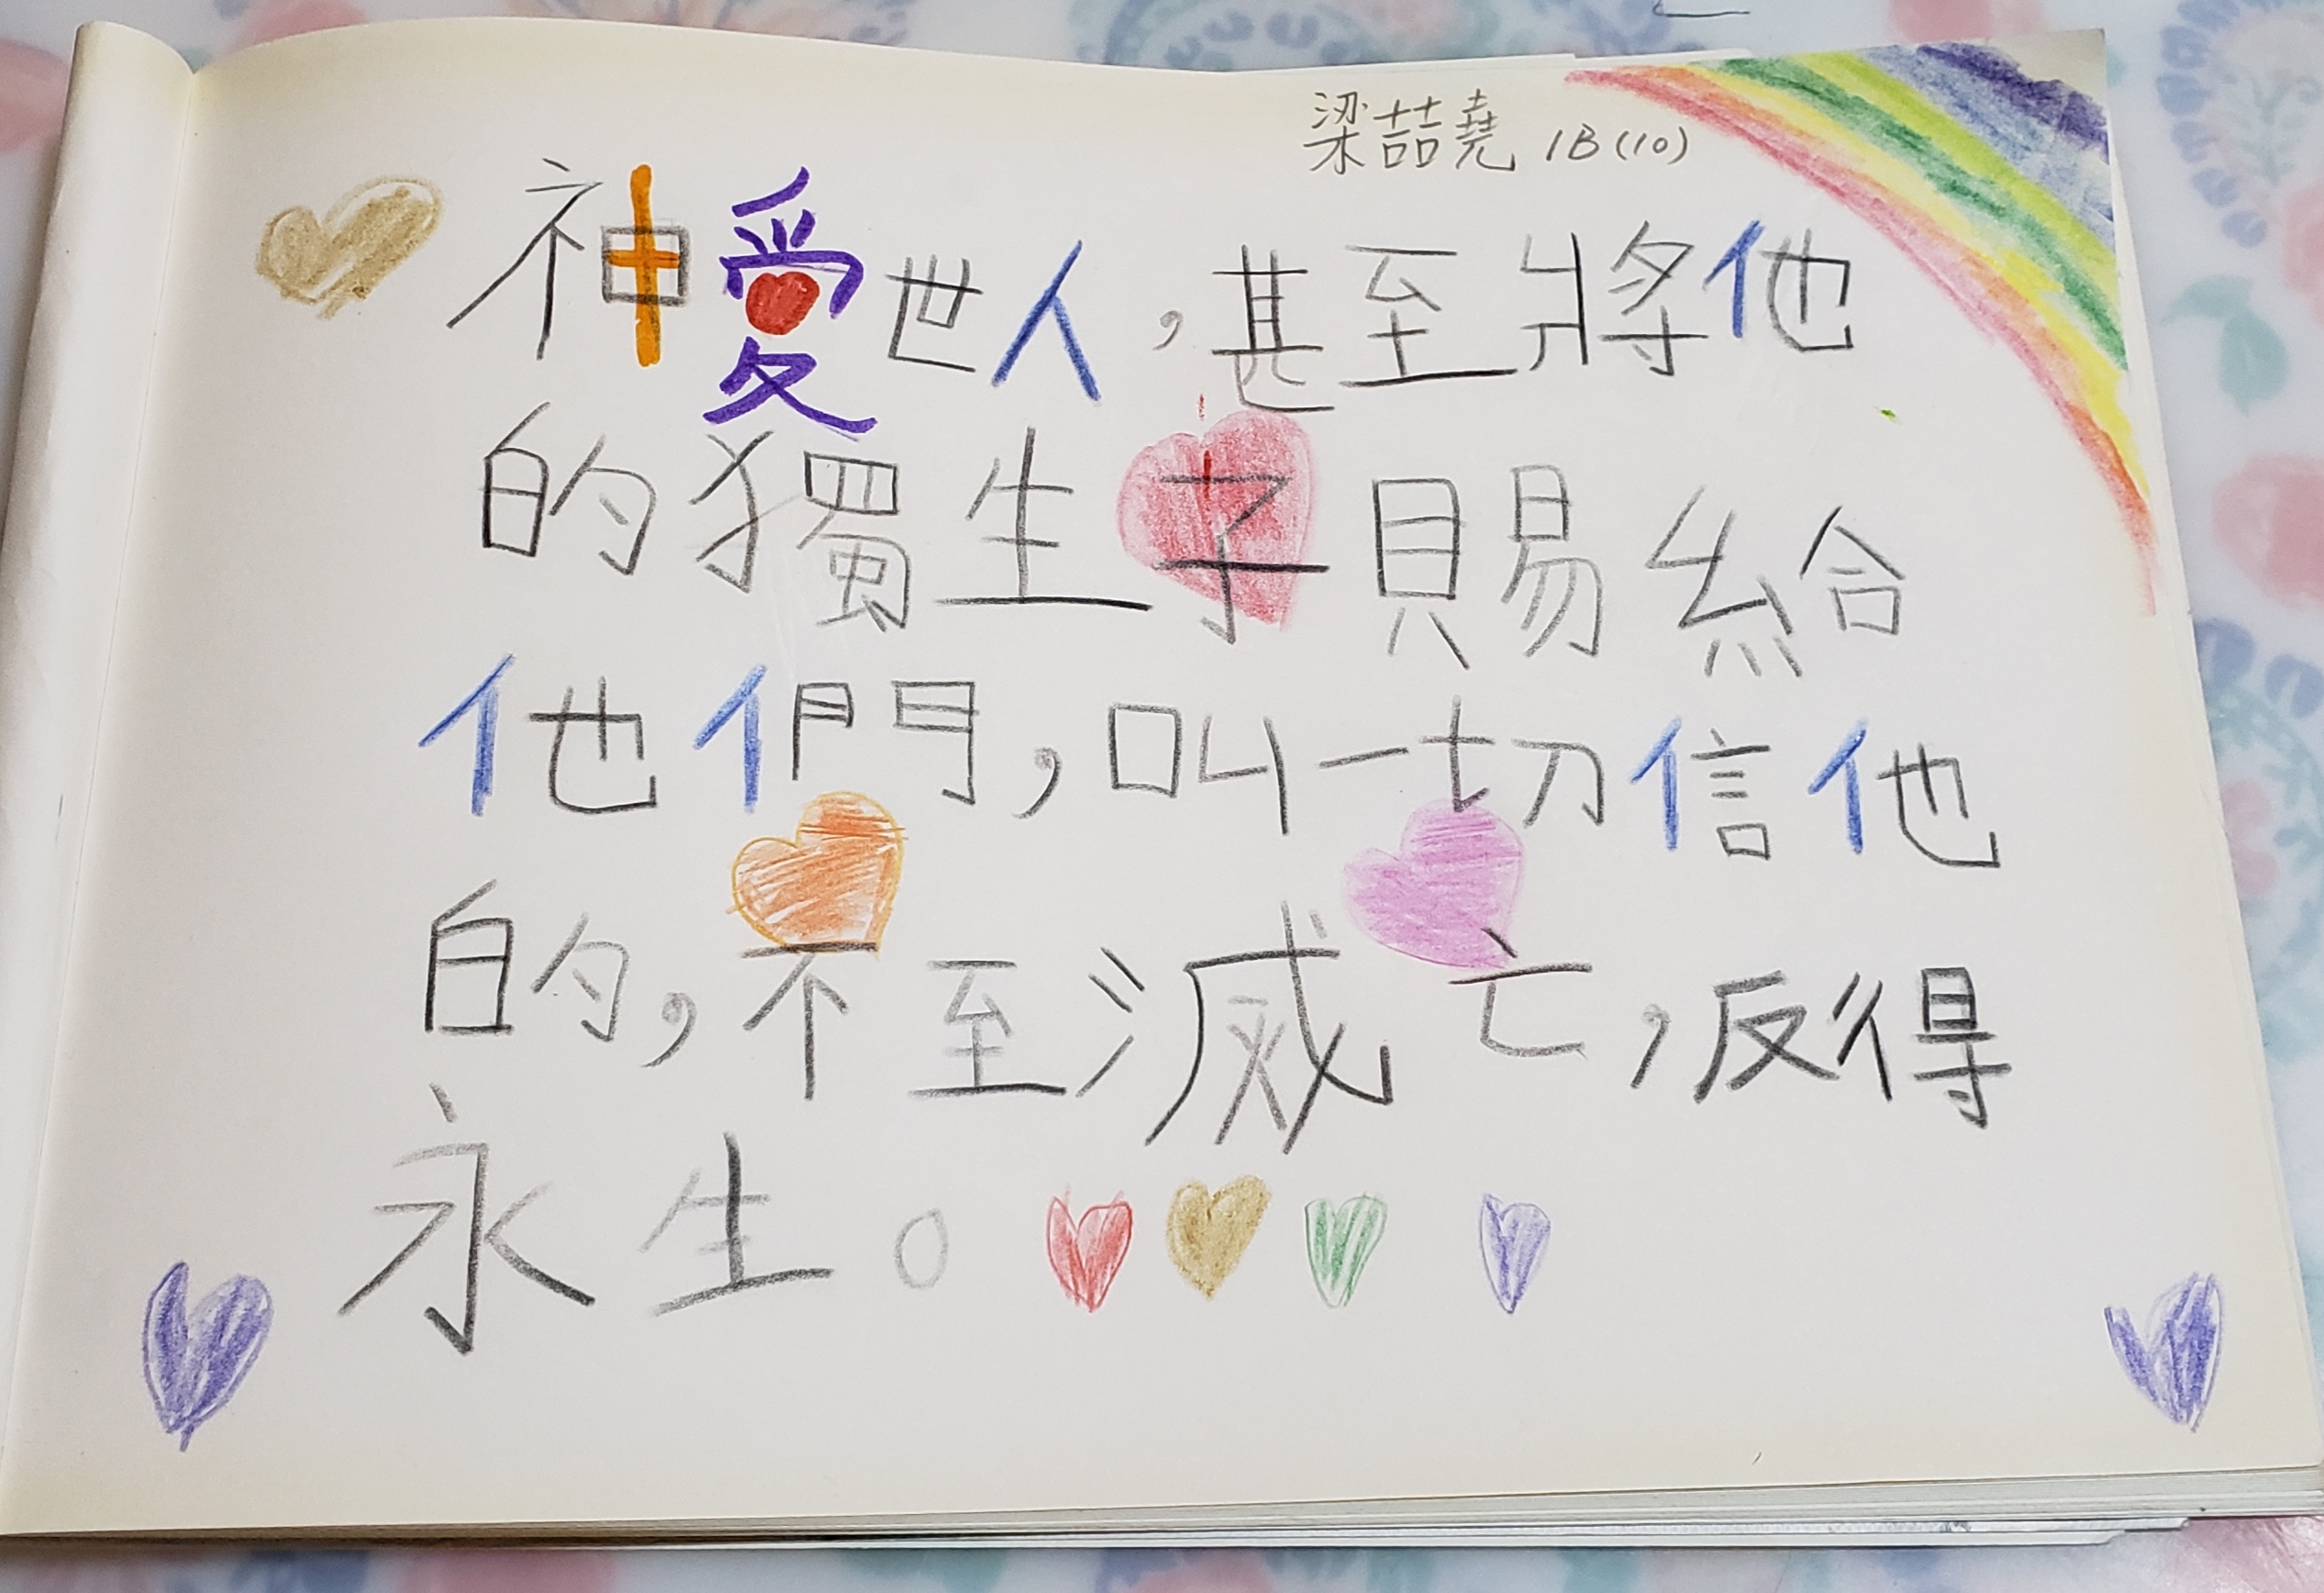 梁喆堯 1B(10)
神愛世人,甚至將他
的獨生子賜給
他們,叫一切信他
的,不至滅亡,反得
永生。